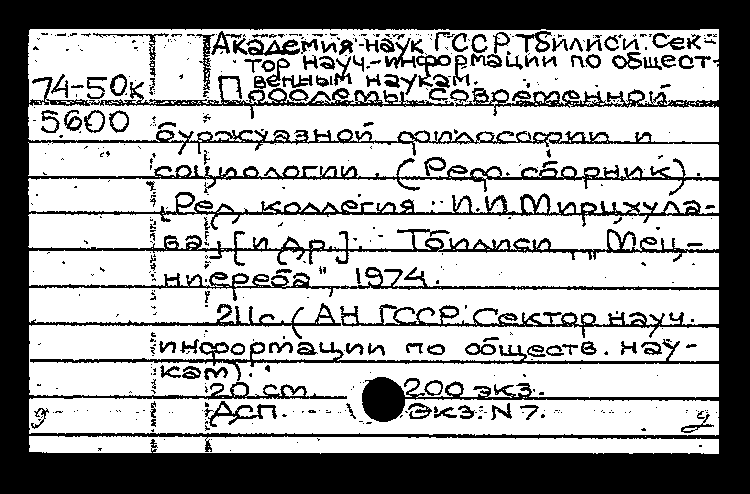 Академия наук ГССР Тбилиси. Сек-
тор науч.-информации по общест-
венным наукам.
74-50к Проблемы современной
5600 буржуазной философии и
социологии. (Реф. сборник).
„Ред. коллегия: И.И. Мирцхула-
ва„ [и др.]. Тбилиси, „Мец-
ниереба", 1974.
211с. (АН ГССР. Сектор науч.
информации по обществ. нау-
кам).
20 см. 200 экз.
ДСП. Экз. N 7.
g g